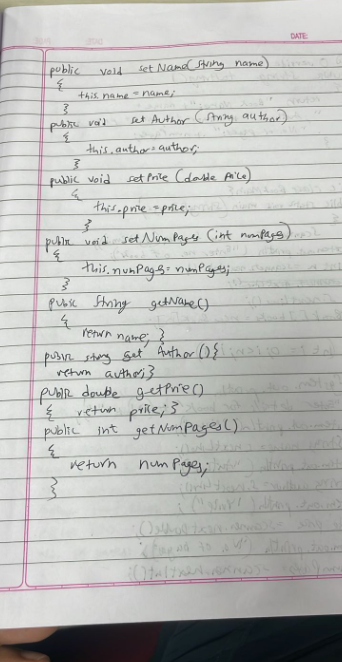 DATE:
public void setName(String name)
{
this.name=name;
}
public void set Author (String author)
{
this.author=author;
}
public void setPrice (double price)
{
this.price=price;
}
public void setNumPages (int numPages)
{
this.numPages=numPages;
}
public String getName()
{
return name; }
public string get Author(){
return author;}
public double getPrice()
{ return price; }
public int getNumPages()
{
return numPages;
}